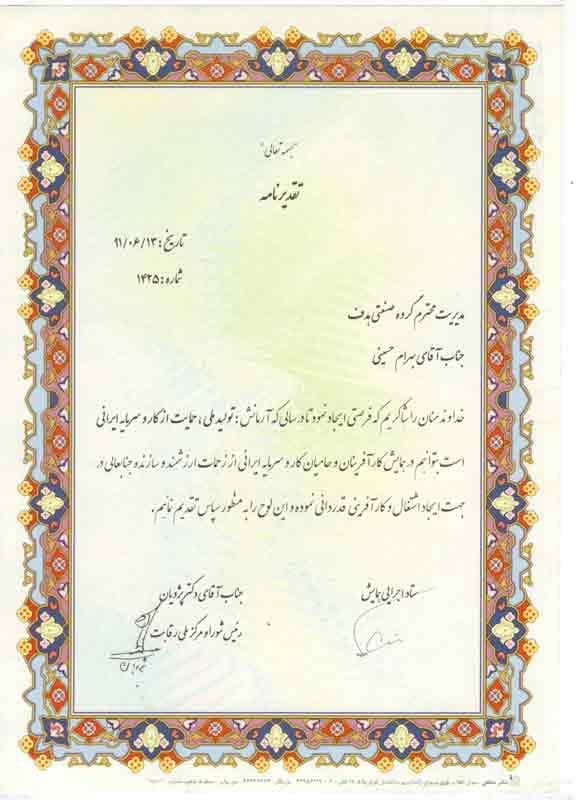 "بسمه تعالی"
تقدیرنامه
تاریخ: ۹۱/۰۶/۱۳
شماره: ۱۴۲۵
مدیریت محترم گروه صنعتی هدف
جناب آقای بهرام حسینی
خداوند منان را شاکریم که فرصتی ایجاد نمود تا در سالی که آرمانش: تولید ملی، حمایت از کار و سرمایه ایرانی
است بتوانیم در همایش کارآفرینان و حامیان کار و سرمایه ایرانی از زحمات ارزشمند و سازنده جنابعالی در
جهت ایجاد اشتغال و کارآفرینی قدردانی نموده و این لوح را به منظور سپاس تقدیم نمائیم.
ستاد اجرایی همایش
جناب آقای دکتر پژویان
رئیس شورا و مرکز ملی رقابت